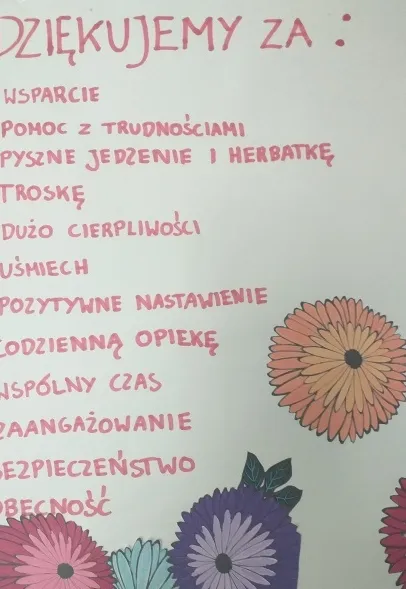 DZIĘKUJEMY ZA :
WSPARCIE
POMOC Z TRUDNOŚCIAMI
PYSZNE JEDZENIE I HERBATKĘ
TROSKĘ
DUŻO CIERPLIWOŚCI
UŚMIECH
POZYTYWNE NASTAWIENIE
CODZIENNĄ OPIEKĘ
WSPÓLNY CZAS
ZAANGAŻOWANIE
BEZPIECZEŃSTWO
OBECNOŚĆ